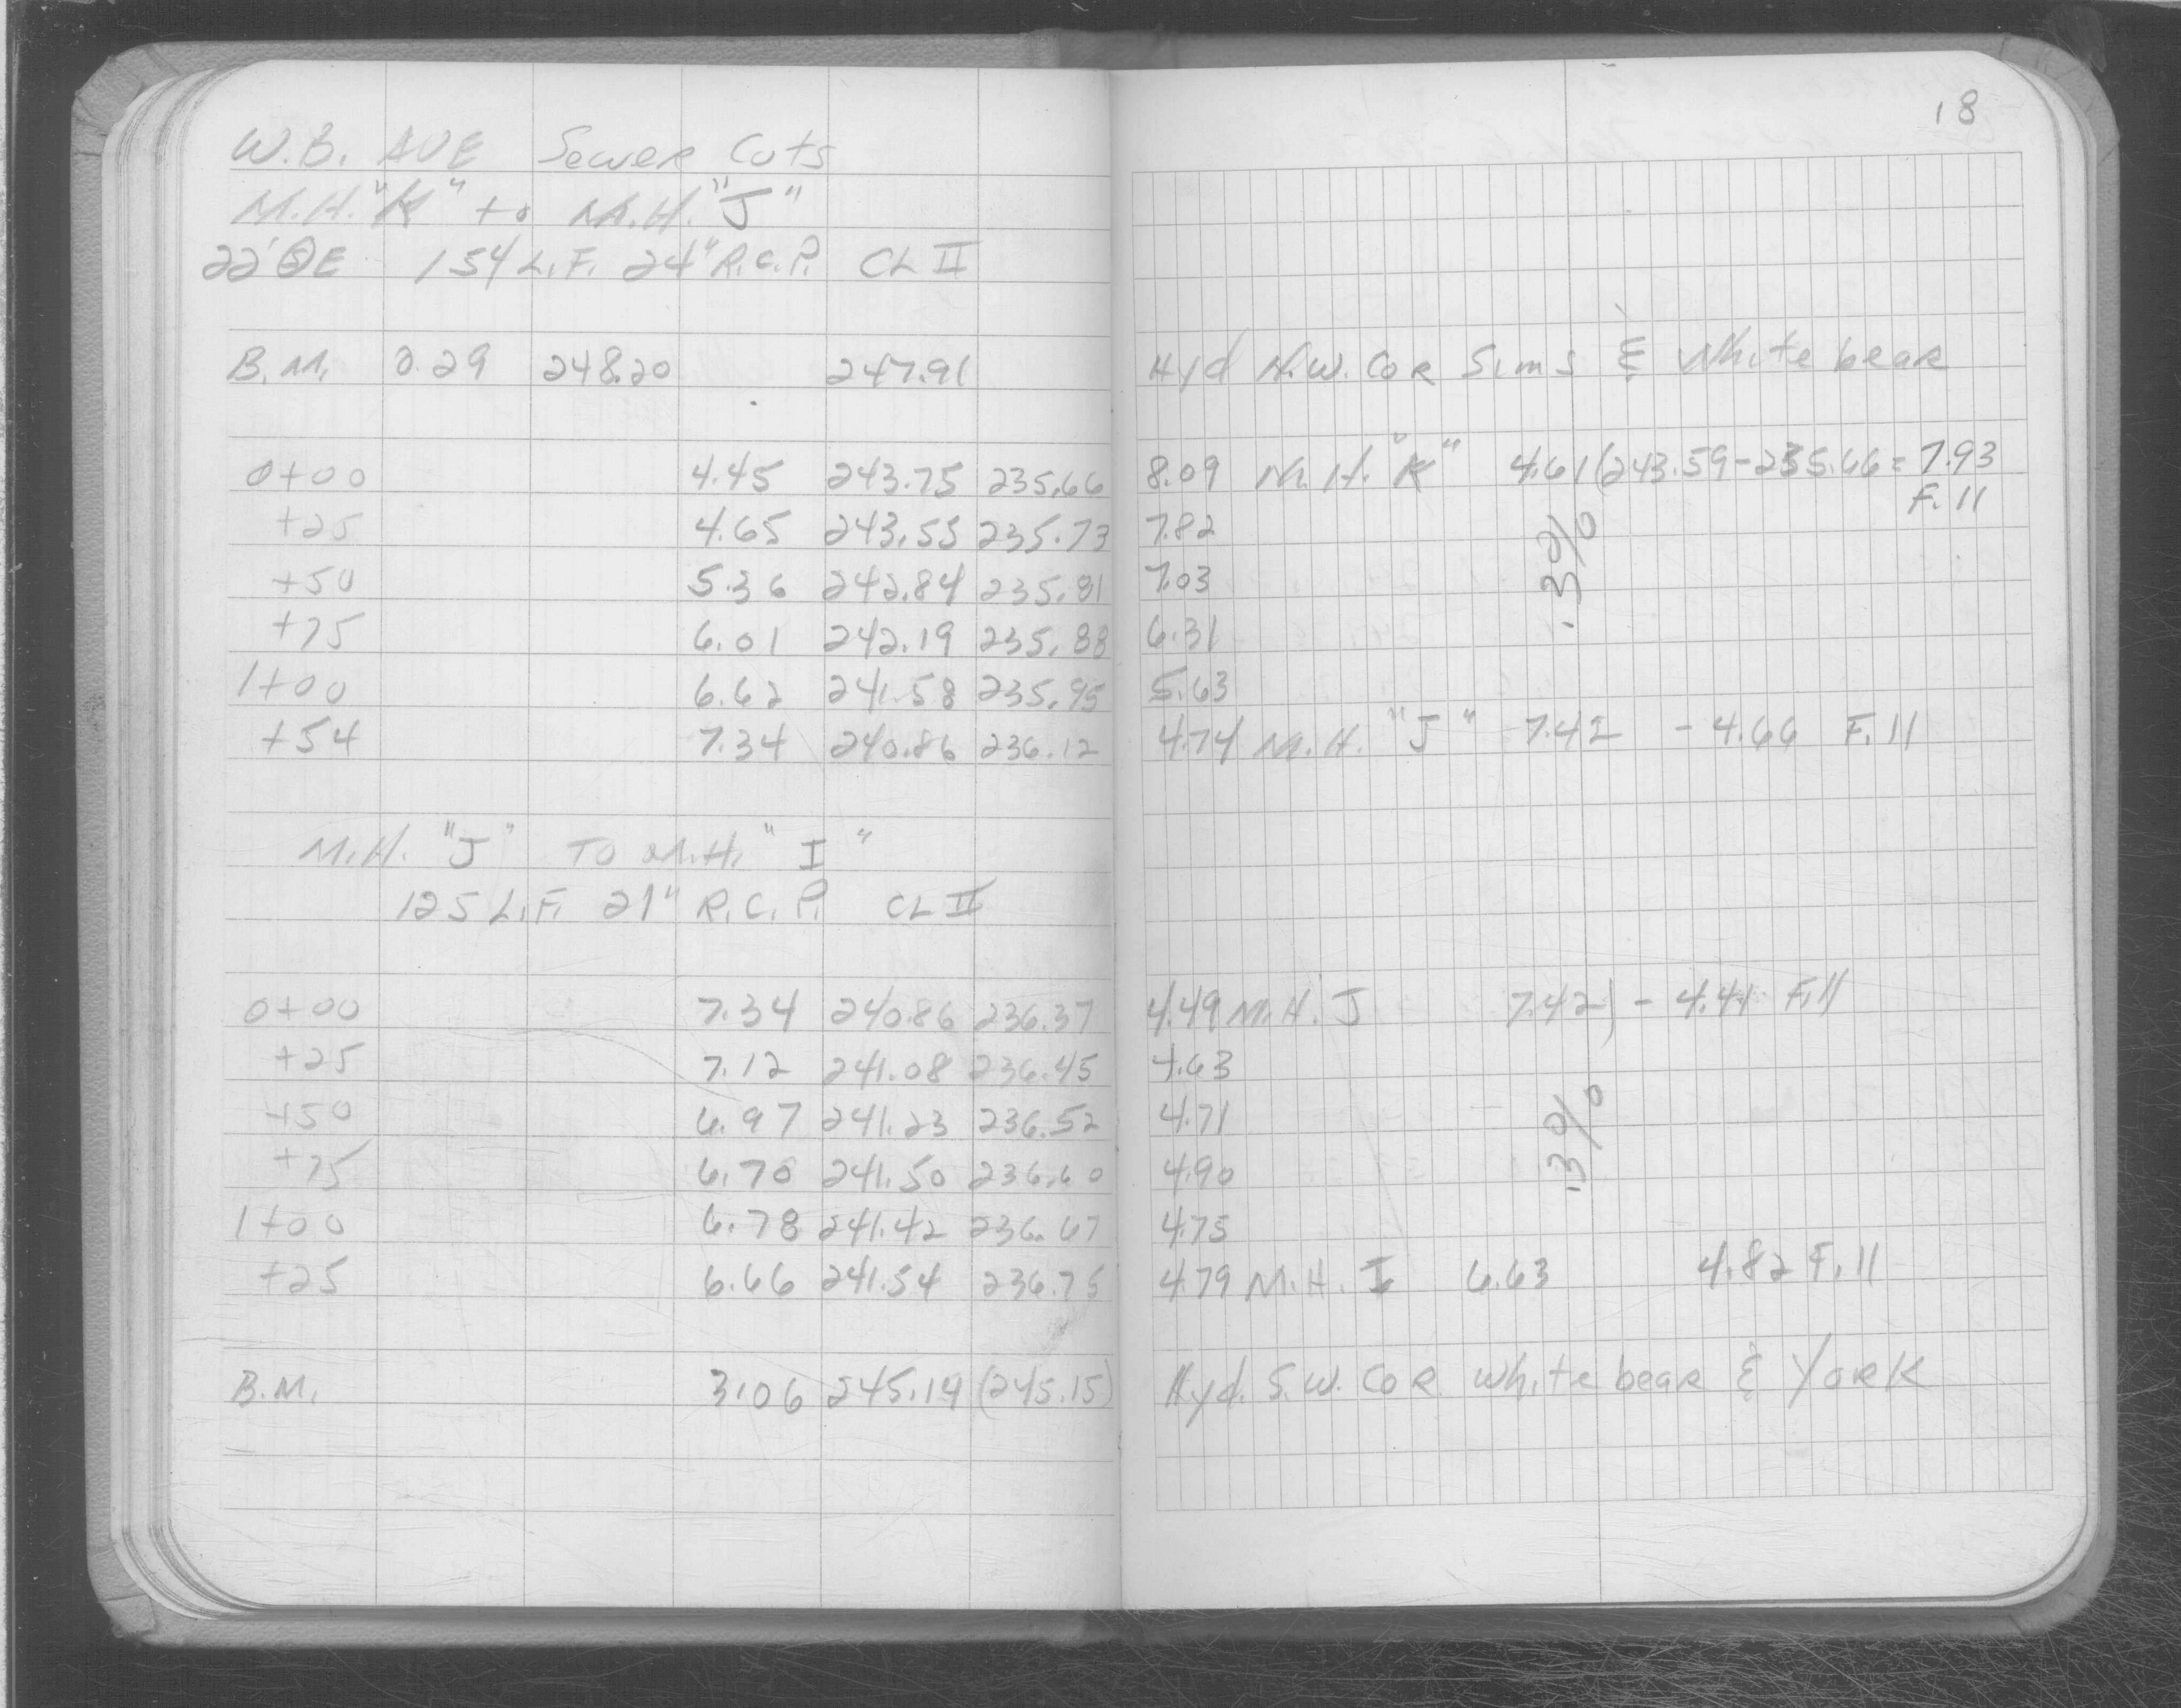 18
W.B. AVE Sewer Cuts
M.H. "K" to M.H. "J"
22' E 154 L.F. 24" R.C.P. CL II
B.M. 0.29 248.20 247.91 Hyd N.W. Cor Sims & White bear
0+00 4.45 243.75 235.66 8.09 M.H. "K" 4.61 (243.59-235.66 = 7.93
Fill
+25 4.65 243.55 235.73 7.82
+50 5.36 242.84 235.81 7.03
.3%
+75 6.01 242.19 235.88 6.31
1+00 6.62 241.58 235.95 5.63
+54 7.34 240.86 236.12 4.74 M.H. "J" 7.42 - 4.66 Fill
M.H. "J" TO M.H. "I"
125 L.F. 21" R.C.P. CL II
0+00 7.34 240.86 236.37 4.49 M.H. J 7.42) - 4.41 Fill
+25 7.12 241.08 236.45 4.63
+50 6.97 241.23 236.52 4.71
.3%
+75 6.70 241.50 236.60 4.90
1+00 6.78 241.42 236.67 4.75
+25 6.66 241.54 236.75 4.79 M.H. I 6.63 4.82 Fill
B.M. 3.06 245.14 (245.15) Hyd. S.W. Cor White bear & York